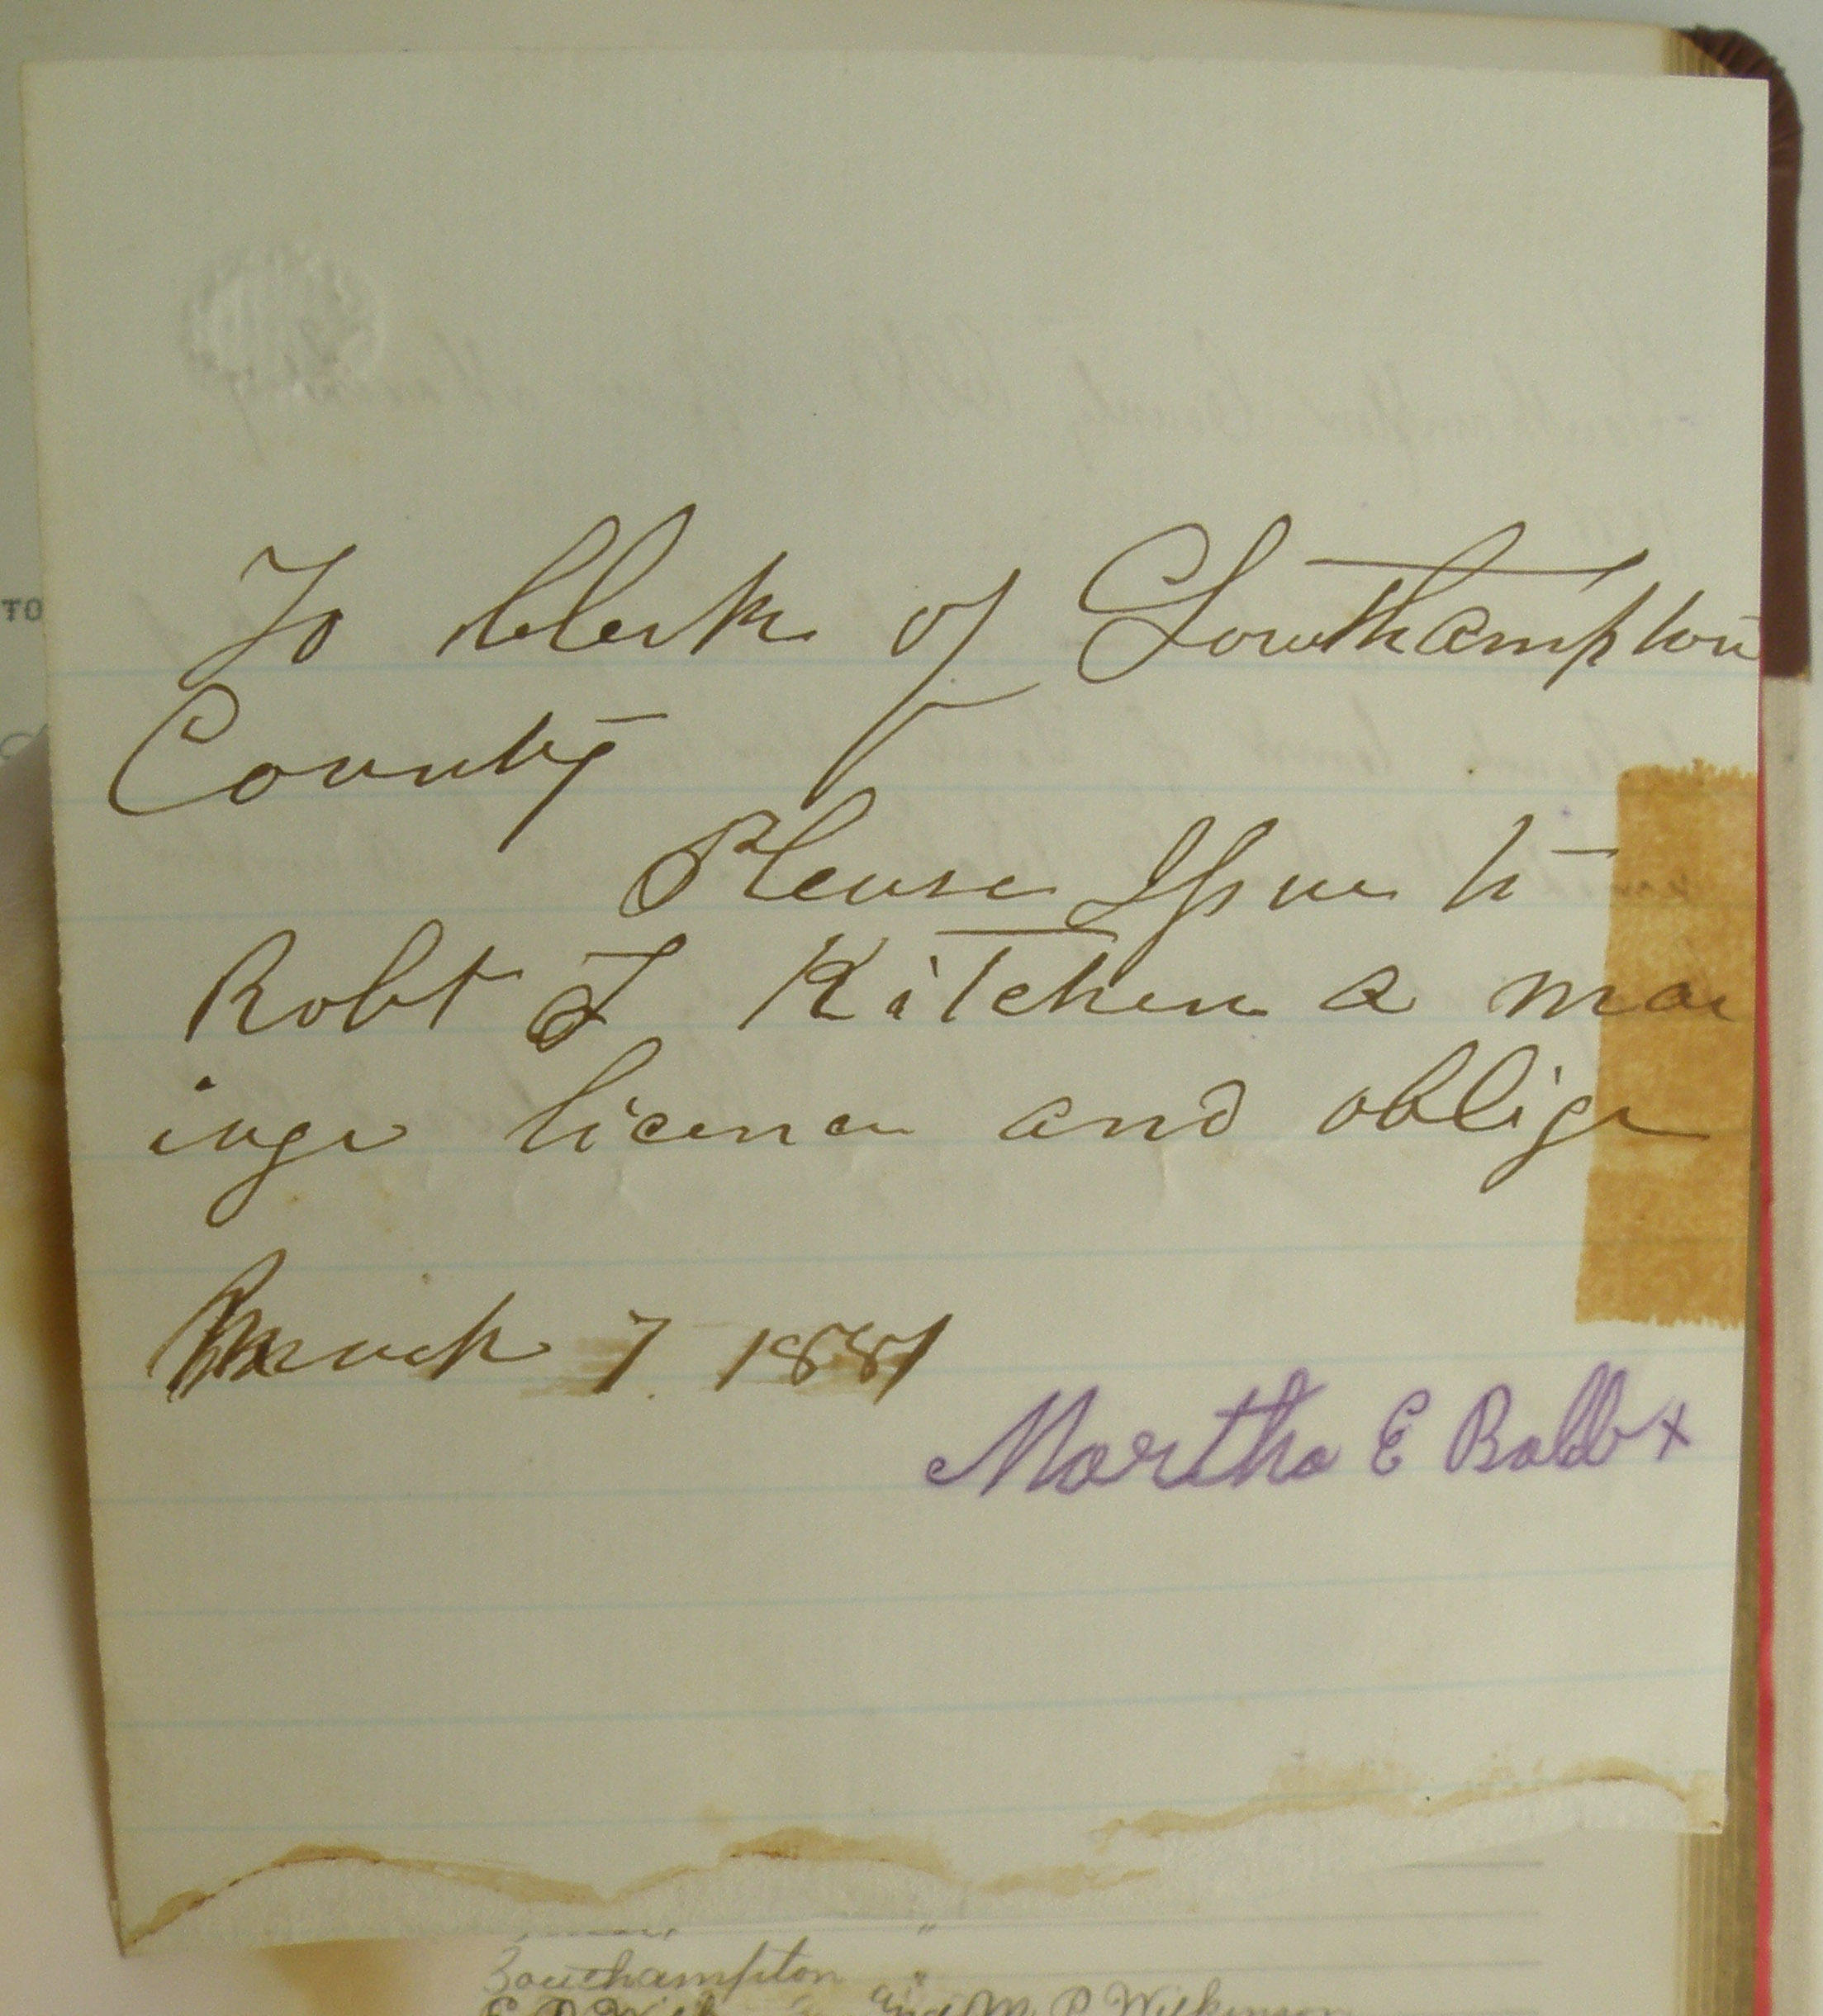 To Clerk of Southampton
County
Please Issue to
Robt T Kitchen a mar
iage licence and oblige
March 7 1881
Martha E Babb x
TO
Southampton "